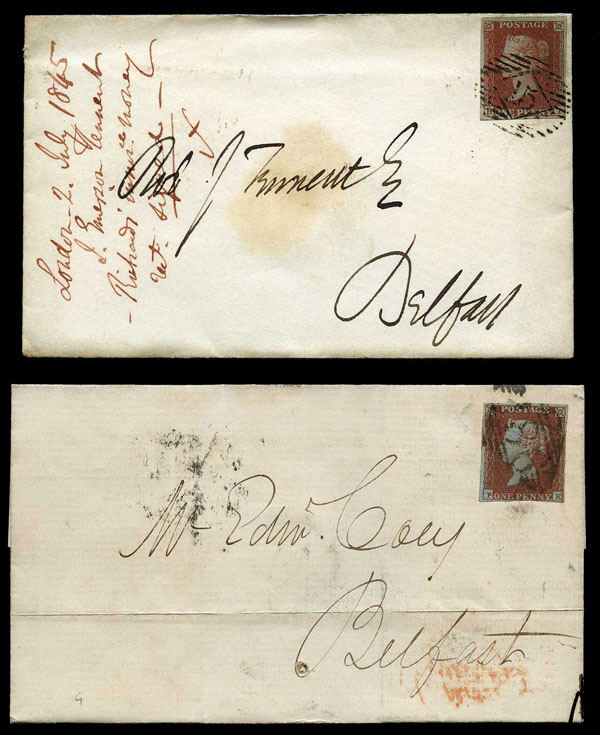 POSTAGE
ONE PENNY
London 2. July 1845
J. Emerson Tennent
Rob J Tennent E
Belfast
POSTAGE
P ONE PENNY K
Mr Edwd. Coey
Belfast